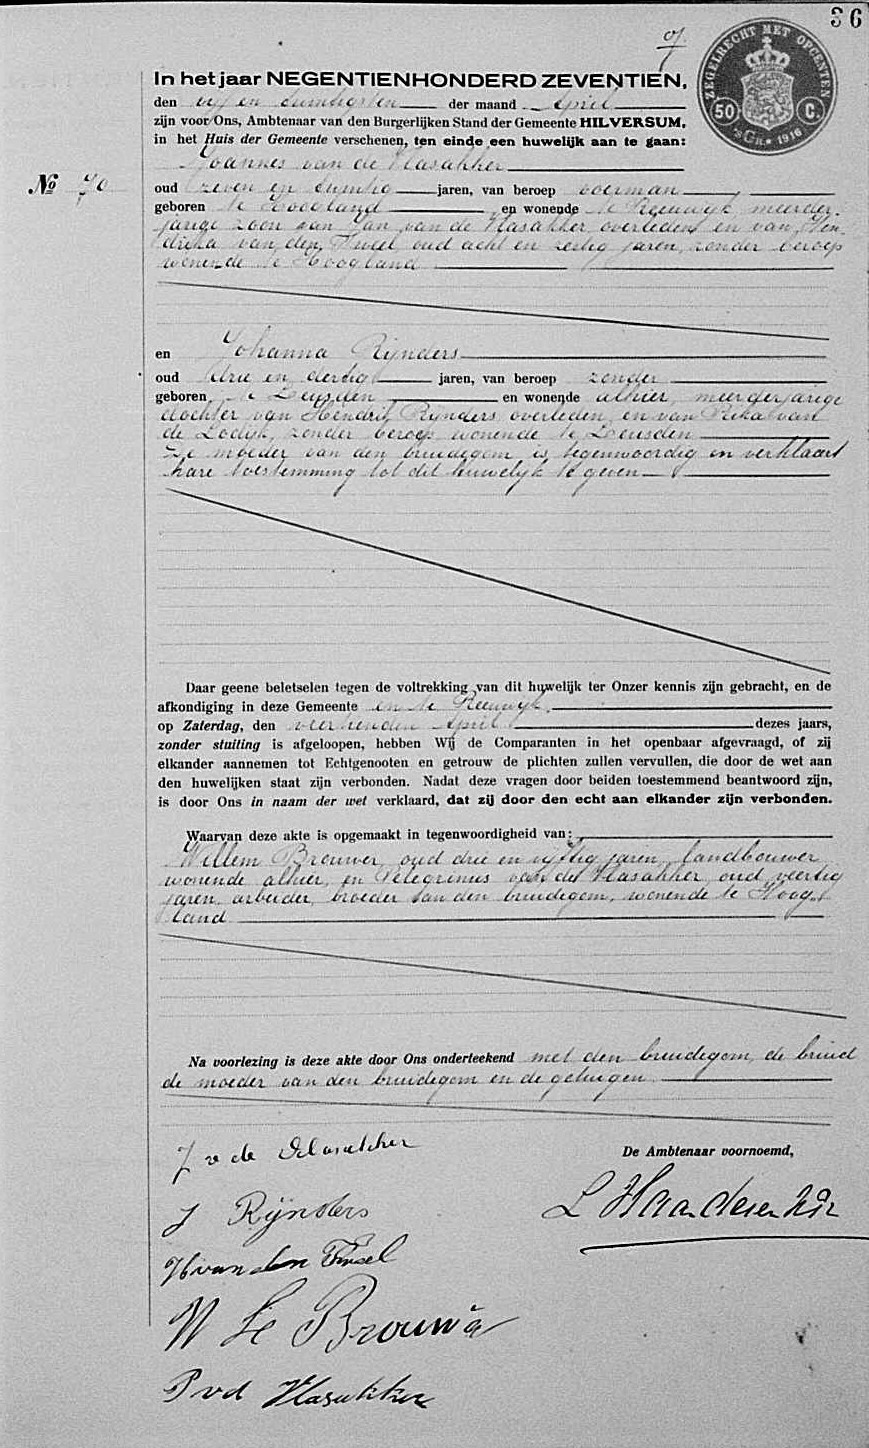 36
ZEGELRECHT MET OPCENTEN
50 C.
1916
In het jaar NEGENTIENHONDERD ZEVENTIEN,
den vyf en twintigsten der maand April
zijn voor Ons, Ambtenaar van den Burgerlijken Stand der Gemeente HILVERSUM,
in het Huis der Gemeente verschenen, ten einde een huwelijk aan te gaan:
Joannes van de Vlasakker
No 70
oud zeven en twintig jaren, van beroep voerman,
geboren te Hoogland en wonende te Reeuwyk, meerder-
jarige zoon van Jan van de Vlasakker overleden en van Hen-
drika van den Tweel oud acht en zestig jaren, zonder beroep
wonende te Hoogland
en Johanna Rynders
oud drie en dertig jaren, van beroep zonder
geboren te Leusden en wonende alhier, meerderjarige
dochter van Hendrik Rynders overleden, en van Rika van
de Lodyk, zonder beroep, wonende te Leusden
De moeder van den bruidegom is tegenwoordig en verklaart
hare toestemming tot dit huwelyk te geven
Daar geene beletselen tegen de voltrekking van dit huwelijk ter Onzer kennis zijn gebracht, en de
afkondiging in deze Gemeente en te Reeuwyk
op Zaterdag, den veertienden April dezes jaars,
zonder stuiting is afgeloopen, hebben Wij de Comparanten in het openbaar afgevraagd, of zij
elkander aannemen tot Echtgenooten en getrouw de plichten zullen vervullen, die door de wet aan
den huwelijken staat zijn verbonden. Nadat deze vragen door beiden toestemmend beantwoord zijn,
is door Ons in naam der wet verklaard, dat zij door den echt aan elkander zijn verbonden.
Waarvan deze akte is opgemaakt in tegenwoordigheid van:
Willem Brouwer, oud drie en vyftig jaren, landbouwer
wonende alhier, en Pelegrinus van de Vlasakker oud veertig
jaren, arbeider, broeder van den bruidegom, wonende te Hoog-
land
Na voorlezing is deze akte door Ons onderteekend met den bruidegom, de bruid
de moeder van den bruidegom en de getuigen
J v de Vlasakker
De Ambtenaar voornoemd,
J Rijnders
H van den Tweel
W Brouwer
P v d Vlasakker